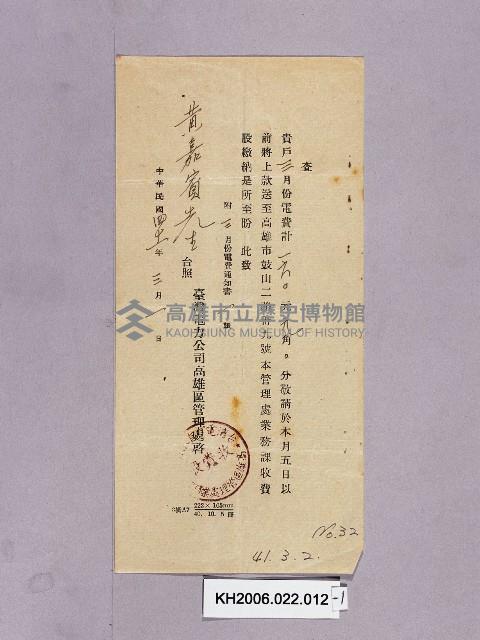 查
貴戶三月份電費計一六〇元九角。分敬請於本月五日以
前將上款送至高雄市鼓山二路卅九號本管理處業務課收費
股繳納是所至盼 此致
附三月份電費通知書一紙
黃嘉賓先生 台照
臺灣電力公司高雄區管理處啓
中華民國四十一年三月一日
222×105mm
40. 10. 5
No.32
41. 3. 2.
高雄市立歷史博物館
KAOHSIUNG MUSEUM OF HISTORY
KH2006.022.012-1